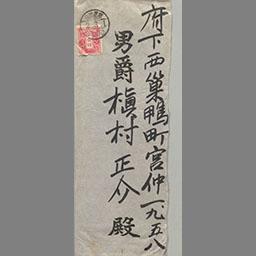 府下西巣鴨町宮仲一九五八
男爵槇村正介殿